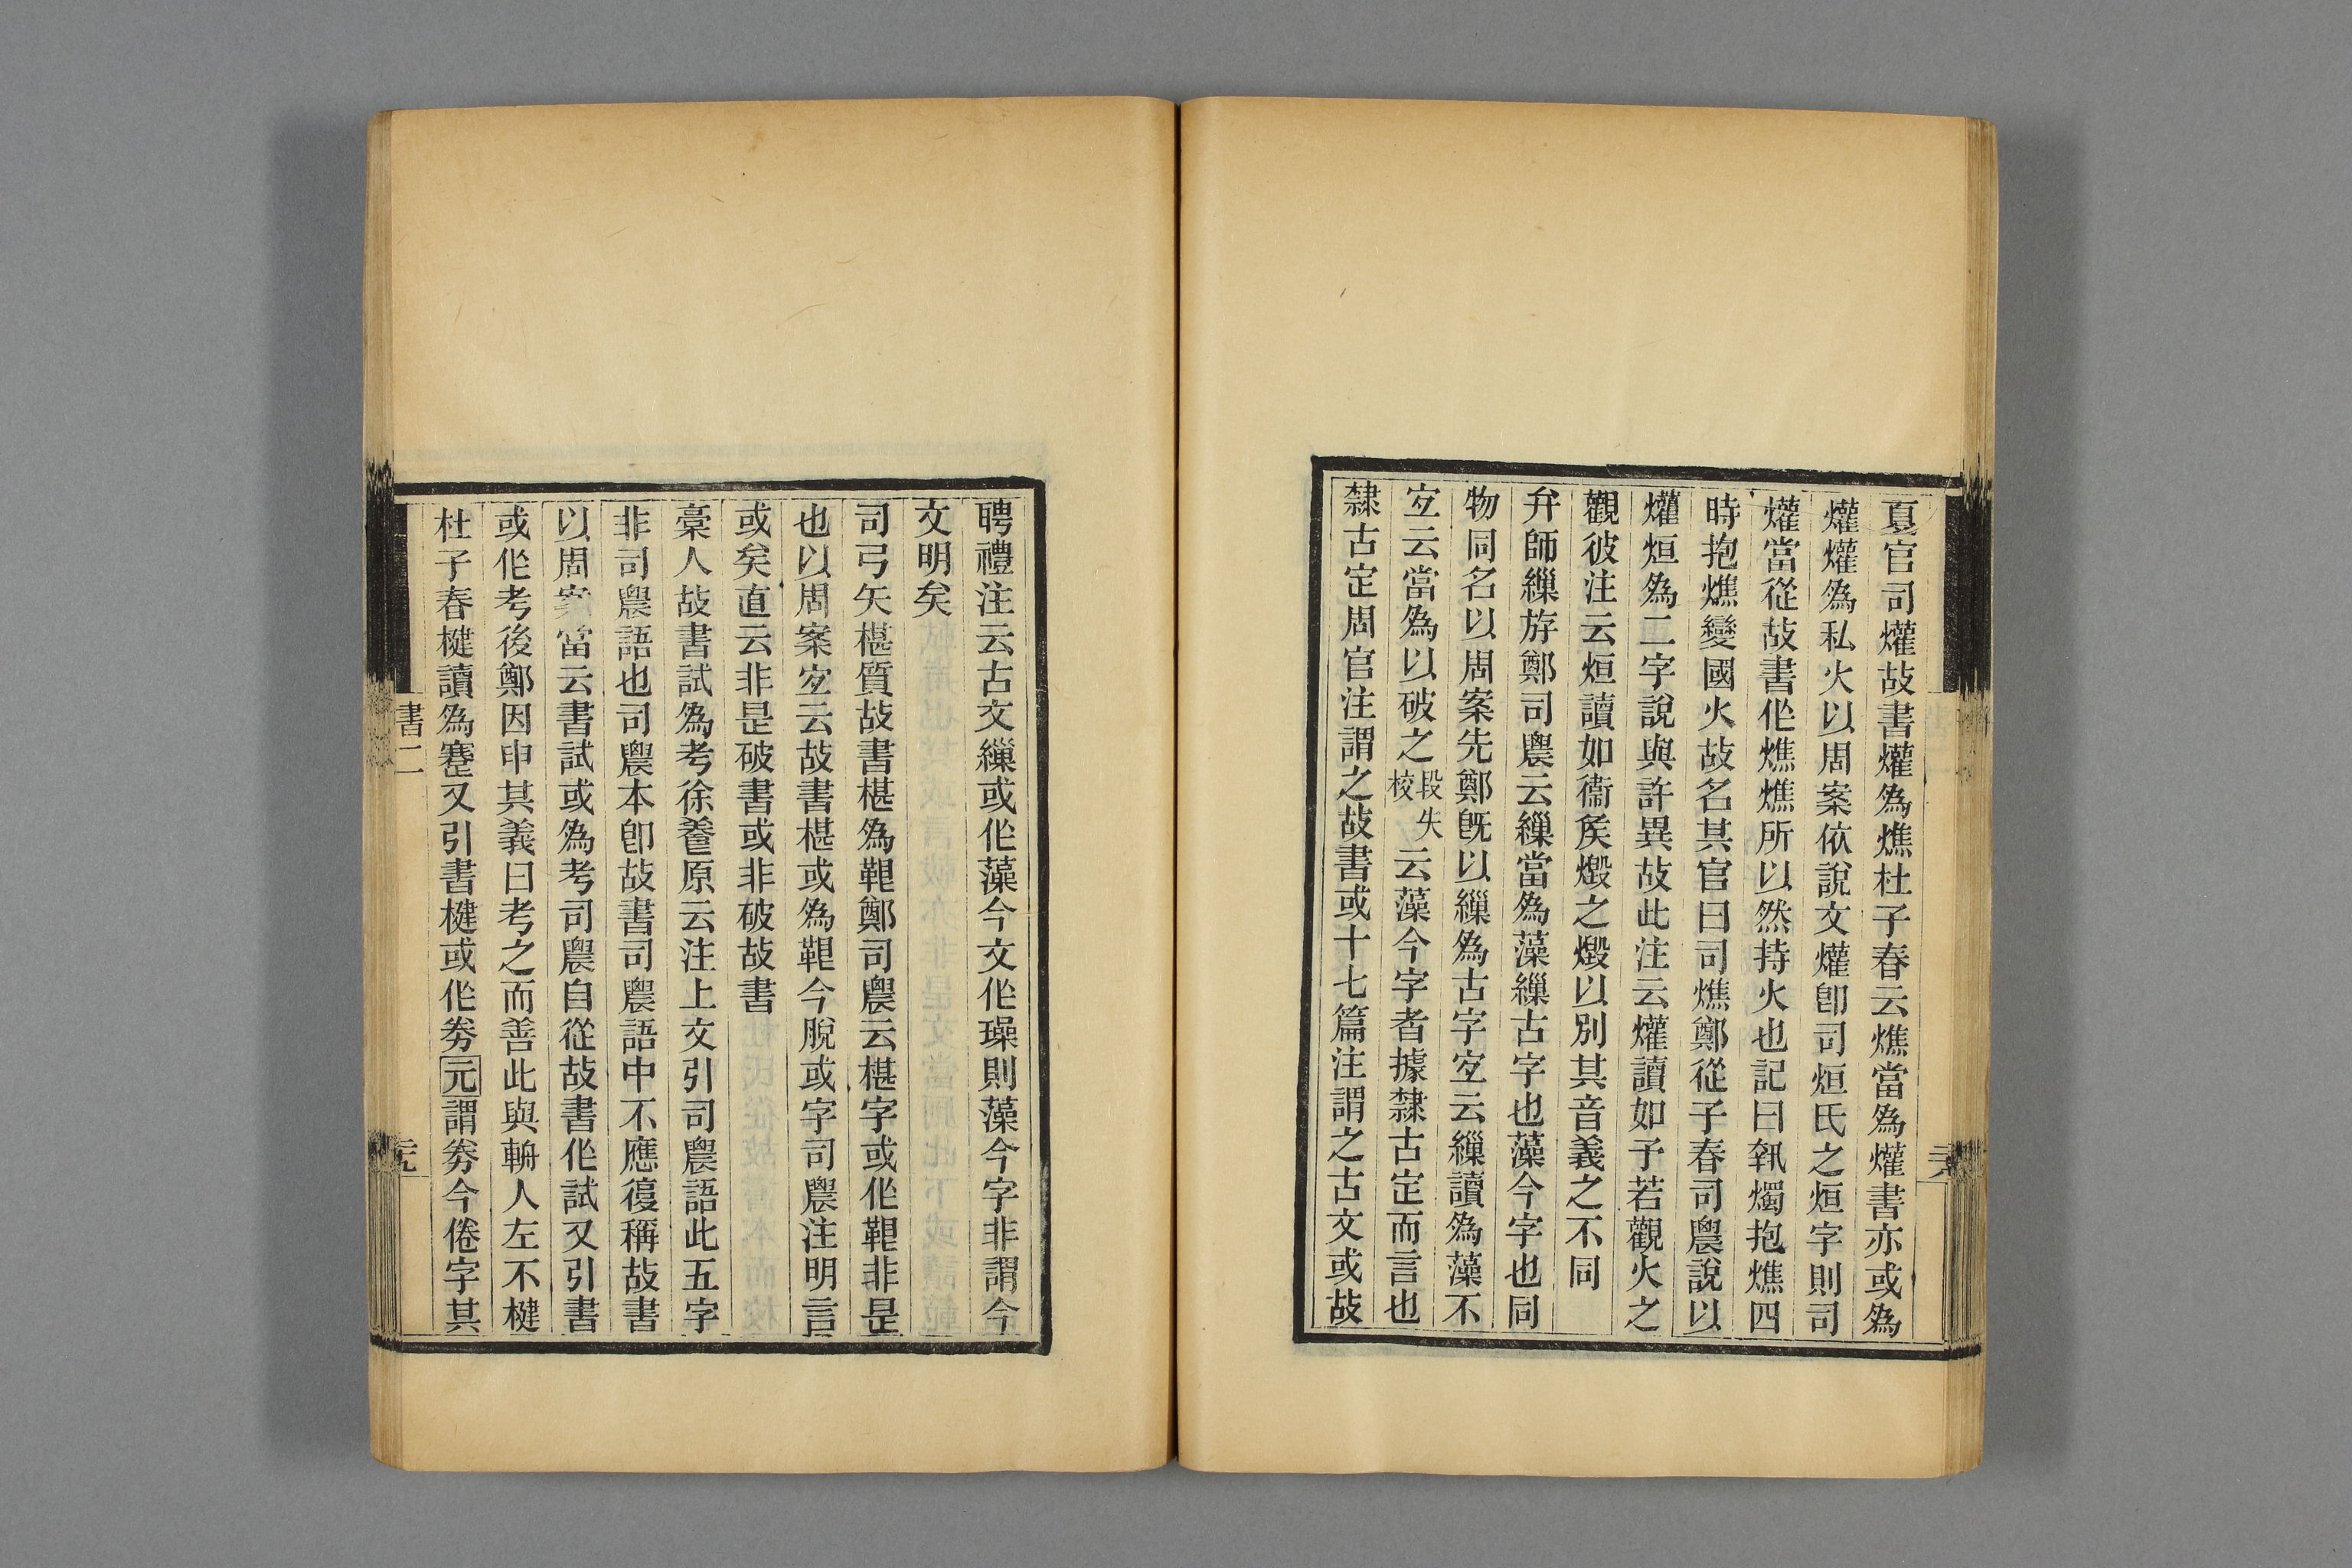 夏官司爟故書爟爲燋杜子春云燋當爲爟書亦或爲
爟爟爲私火以周案依說文爟卽司烜氏之烜字則司
爟當從故書作燋燋所以然持火也記曰執燭抱燋四
時抱燋變國火故名其官曰司燋鄭從子春司農說以
爟烜爲二字說與許異故此注云爟讀如予若觀火之
觀彼注云烜讀如衞矦燬之燬以別其音義之不同
弁師繅斿鄭司農云繅當爲藻繅古字也藻今字也同
物同名以周案先鄭旣以繅爲古字宐云繅讀爲藻不
宐云當爲以破之段失校云藻今字者據隸古定而言也
隸古定周官注謂之故書或十七篇注謂之古文或故
聘禮注云古文繅或作藻今文作璪則藻今字非謂今
文明矣
司弓矢椹質故書椹爲鞎鄭司農云椹字或作鞎非是
也以周案宐云故書椹或爲鞎今脫或字司農注明言
或矣直云非是破書或非破故書
槀人故書試爲考徐養原云注上文引司農語此五字
非司農語也司農本卽故書司農語中不應復稱故書
以周案當云書試或爲考司農自從故書作試又引書
或作考後鄭因申其義曰考之而善此與輈人左不楗
杜子春楗讀爲蹇又引書楗或作劵元謂劵今倦字其
書二